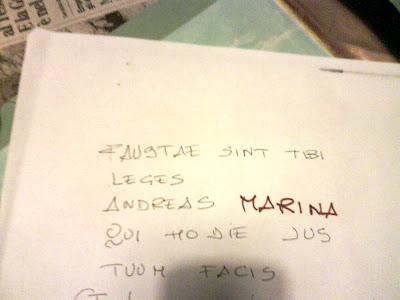 FAUSTAE SINT TIBI
LEGES
ANDREAS MARINA
QUI HODIE JUS
TUUM FACIS